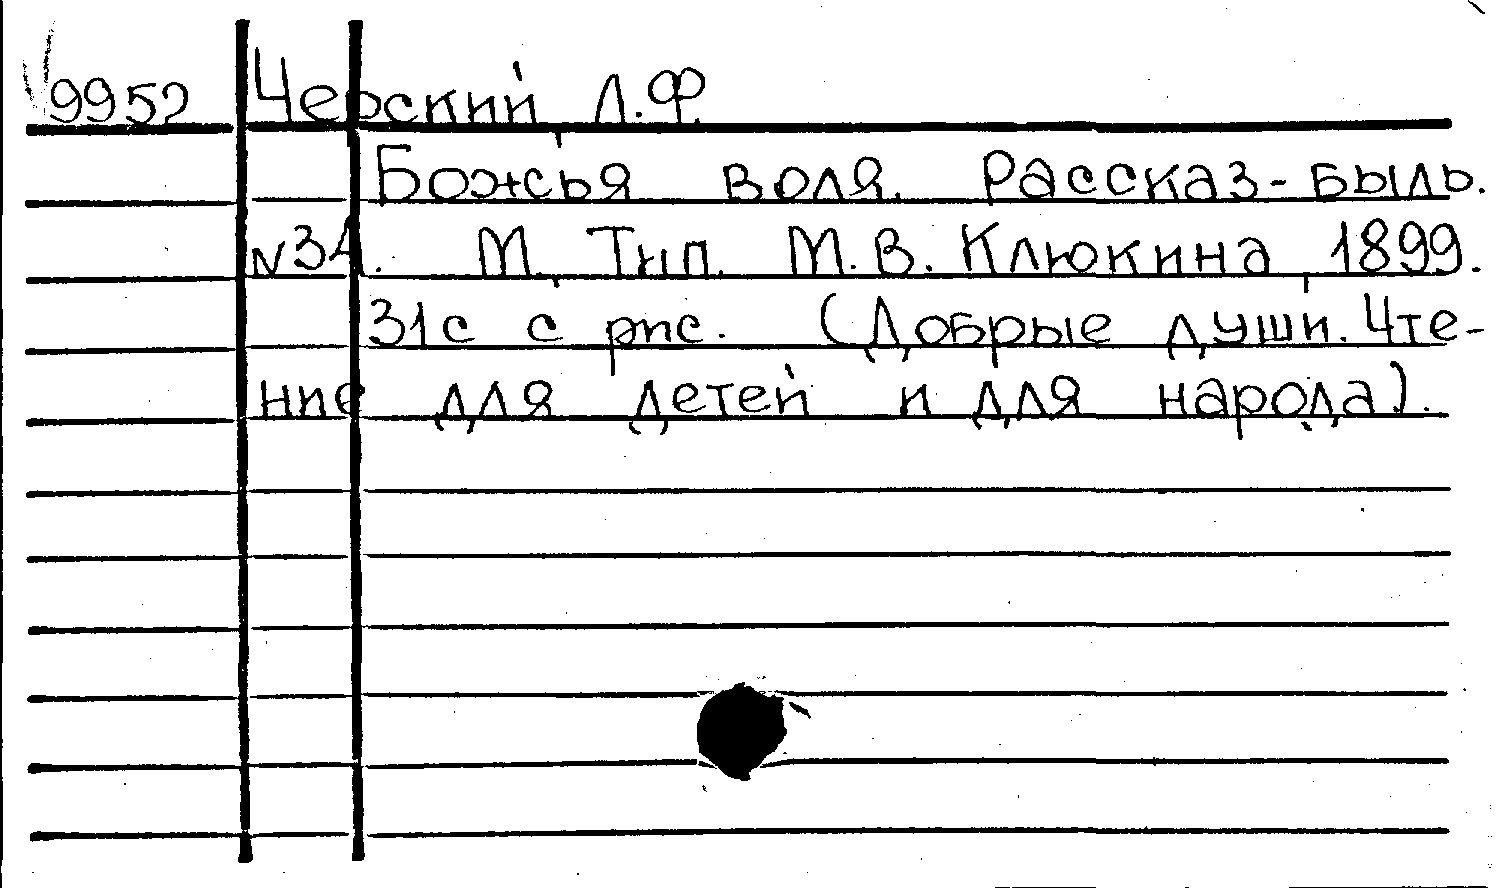 9952 Черский, Л.Ф.
Божья воля. Рассказ-быль.
N34. М., Тип. М.В. Клюкина, 1899.
31с с рис. (Добрые души. Чте-
ние для детей и для народа).